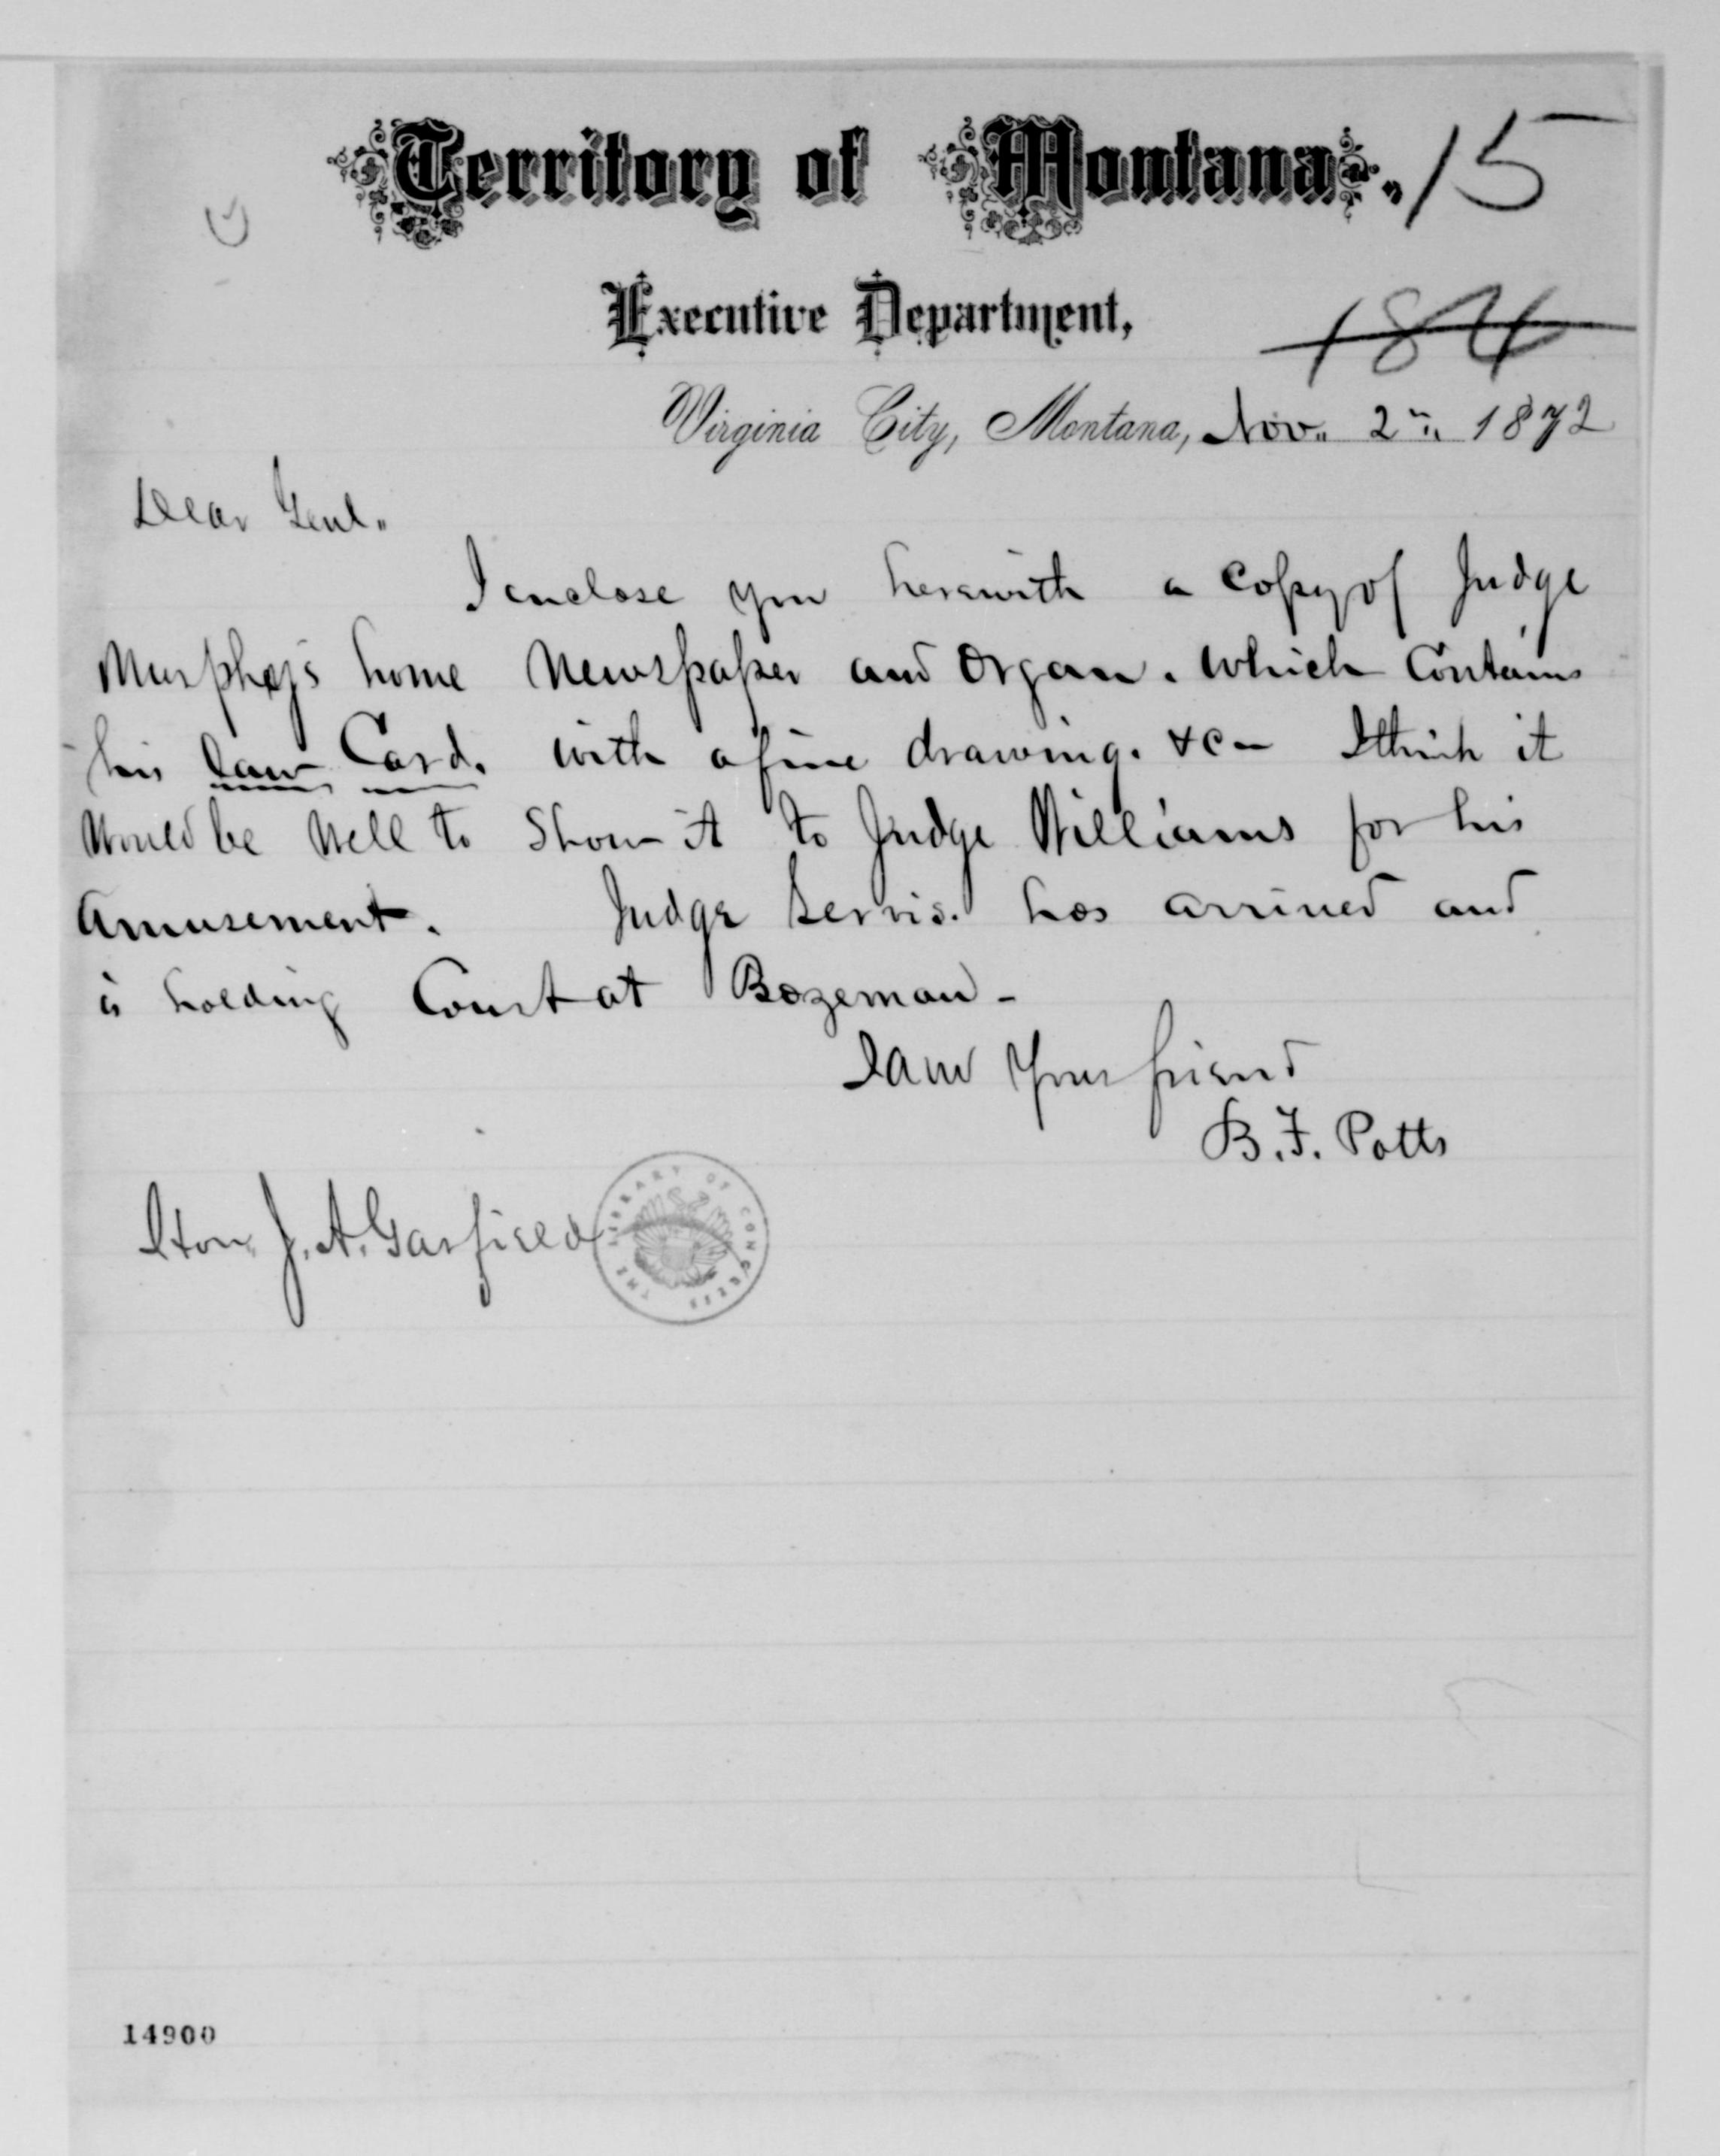 Territory of Montana. 15
Executive Department,
184
Virginia City, Montana, Nov. 2", 1872
Dear Genl.
I enclose you herewith a copy of Judge
Murphy's home Newspaper and Organ. which Contains
his law Card. with a fine drawing. &c- I think it
Would be Well to Show it to Judge Williams for his
Amusement. Judge Servis. has arrived and
is holding Court at Bozeman-
I am Your friend
B. F. Potts
Hon. J. A. Garfield
THE LIBRARY OF CONGRESS
14900